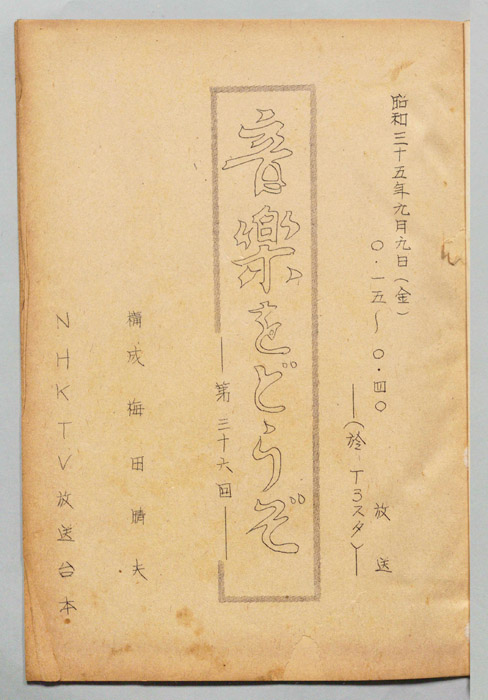 昭和三十五年九月九日(金)
〇・一五〜〇・四〇
放送
(於 T3スタ)
音楽をどうぞ
第三十六回
構成 梅田晴夫
NHKTV放送台本